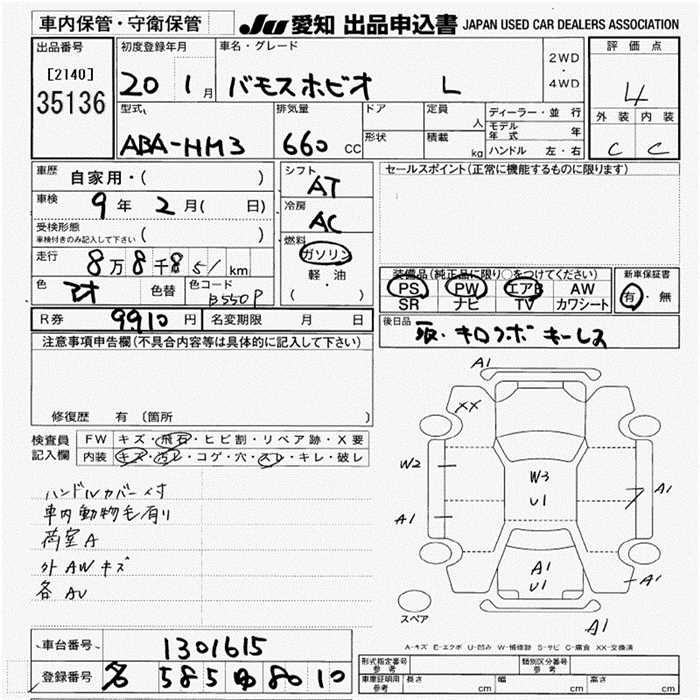 車内保管・守衛保管
JU 愛知 出品申込書 JAPAN USED CAR DEALERS ASSOCIATION
出品番号
[2140]
35136
初度登録年月
20 1月
車名・グレード
バモスホビオ L
2WD
・
4WD
評価点
4
外装 内装
C C
型式
ABA-HM3
排気量
660 CC
ドア
形状
定員 人
積載 kg
ディーラー・並行
モデル年式 年
ハンドル 左・右
車歴 自家用・( )
車検 9年2月( 日)
受検形態 ( )
車検付きのみ記入して下さい
走行 8万8千851 km
色 色替 色コード B550P
シフト
AT
冷房
AC
燃料
ガソリン
軽・油
( )
セールスポイント(正常に機能するものに限ります)
装備品(純正品に限り○をつけてください)
PS PW エアB AW
SR ナビ TV カワシート
新車保証書
有・無
R券 9910円 名変期限 月 日
後日品
取. キロクボ キーレス
注意事項申告欄(不具合内容等は具体的に記入して下さい)
修復歴 有(箇所
検査員記入欄
FW キズ・飛石・ヒビ割・リペア跡・X要
内装 キズ・汚レ・コゲ・穴・スレ・キレ・破レ
ハンドルカバー付
車内動物毛有り
荷室A
外AWキズ
各AU
A1
XX
W2
W3
U1
A1
A1
A1
U1
A1
スペア
A1
A-キズ E-エクボ U-凹み W-補修跡 S-サビ C-腐食 XX-交換済
車台番号 1301615
登録番号 名 585 ゆ 8010
型式指定番号 参考
類別区分番号 参考
車庫証明用 参考 長さ cm 幅 cm 高さ cm